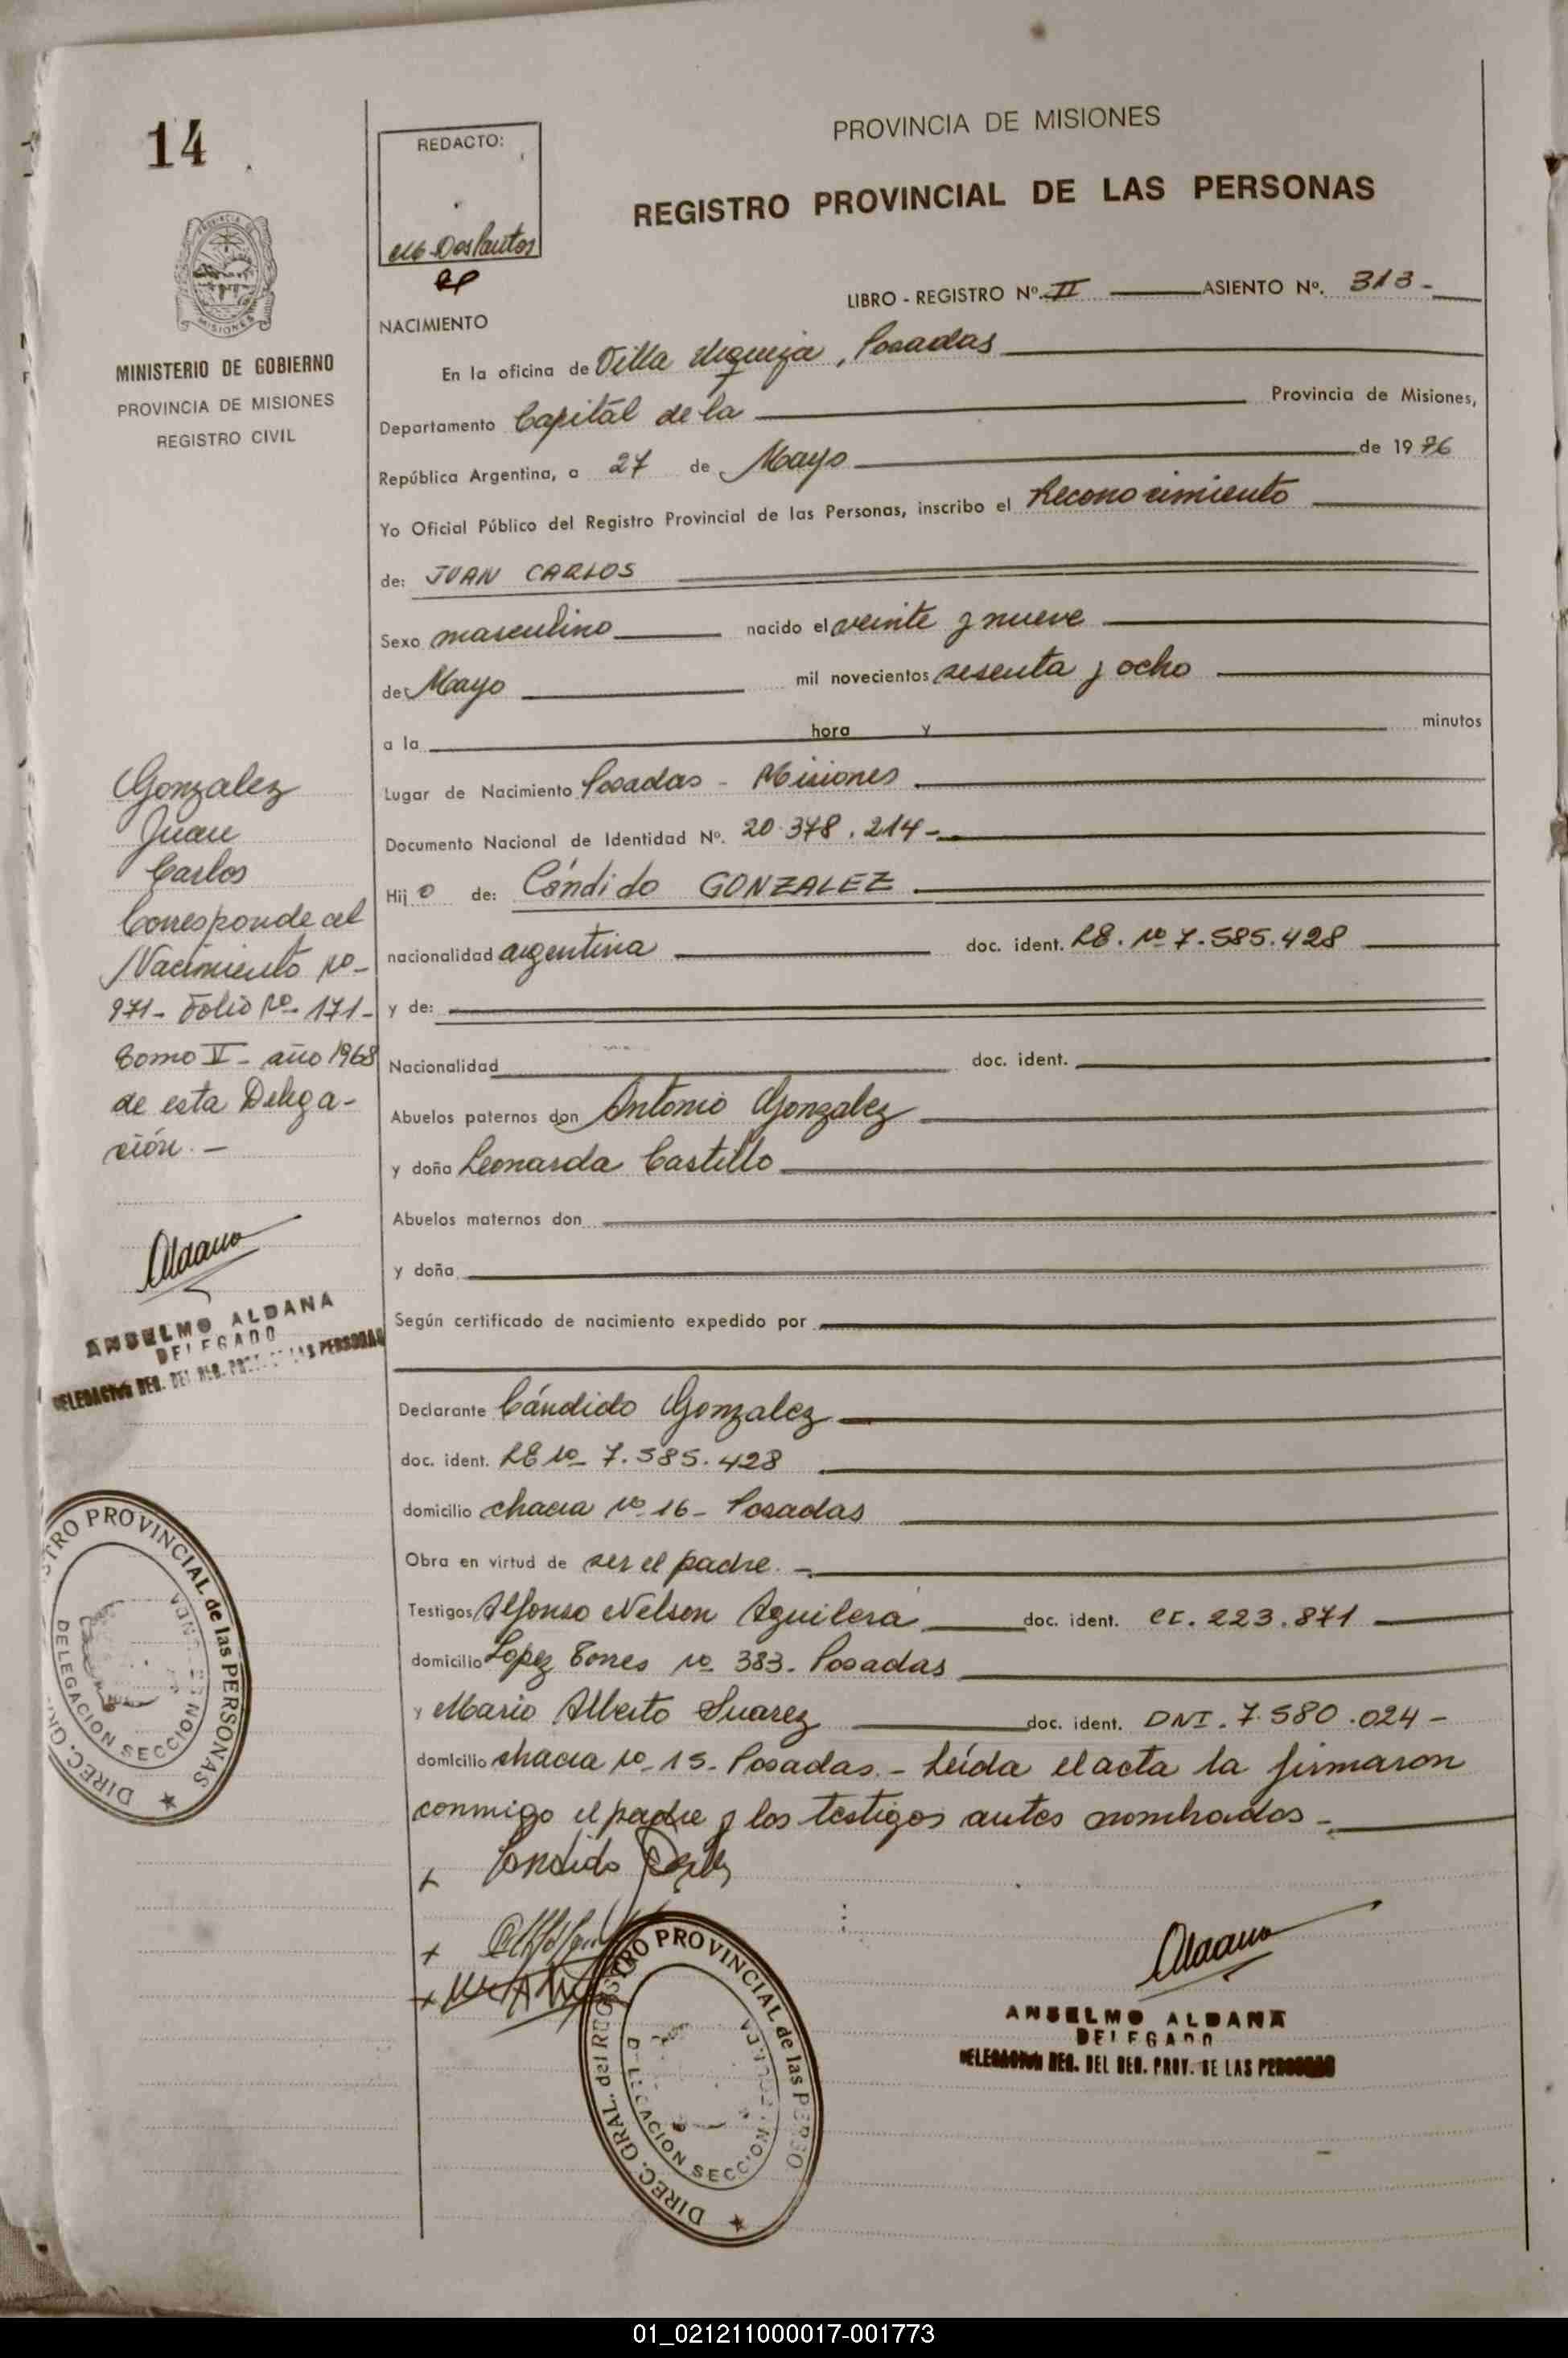 14
PROVINCIA DE MISIONES
REGISTRO PROVINCIAL DE LAS PERSONAS
REDACTO:
LIBRO - REGISTRO Nº. II ASIENTO Nº. 313-
MISIONES
MINISTERIO DE GOBIERNO
PROVINCIA DE MISIONES
REGISTRO CIVIL
NACIMIENTO
En la oficina de Villa Urquiza, Posadas
Departamento Capital de la Provincia de Misiones,
República Argentina, a 27 de Mayo de 1976
Yo Oficial Público del Registro Provincial de las Personas, inscribo el Reconocimiento
de: JUAN CARLOS
Sexo masculino nacido el veinte y nueve
de Mayo mil novecientos sesenta y ocho
a la hora y minutos
Lugar de Nacimiento Posadas - Misiones
Documento Nacional de Identidad Nº. 20.378.214-
Hijo de: Cándido GONZALEZ
nacionalidad argentina doc. ident. LE. Nº 7.585.428
y de:
Nacionalidad doc. ident.
Abuelos paternos don Antonio Gonzalez
y doña Leonarda Castillo
Abuelos maternos don
y doña
Según certificado de nacimiento expedido por
Declarante Cándido Gonzalez
doc. ident. LE Nº 7.585.428
domicilio chacra Nº 16- Posadas
Obra en virtud de ser el padre.-
Testigos Alfonso Nelson Aguilera doc. ident. CI. 223.871
domicilio Lopez Torres Nº 383- Posadas
y Mario Alberto Suarez doc. ident. DNI. 7.580.024-
domicilio chacra Nº 15- Posadas.- Leída el acta la firmaron
conmigo el padre y los testigos antes nombrados-
Gonzalez
Juan
Carlos
Corresponde al
Nacimiento Nº-
971- Folio Nº 171-
Tomo V- año 1968
de esta Delega-
ción.-
ANSELMO ALDANA
DELEGADO
DIREC. GRAL. del REGISTRO PROVINCIAL de las PERSONAS
DELEGACION SECCION
Candido
ANSELMO ALDANA
DELEGADO
DELEGACION REG. DEL REG. PROV. DE LAS PERSONAS
DIREC. GRAL. del REGISTRO PROVINCIAL de las PERSO
SECCION
01_021211000017-001773